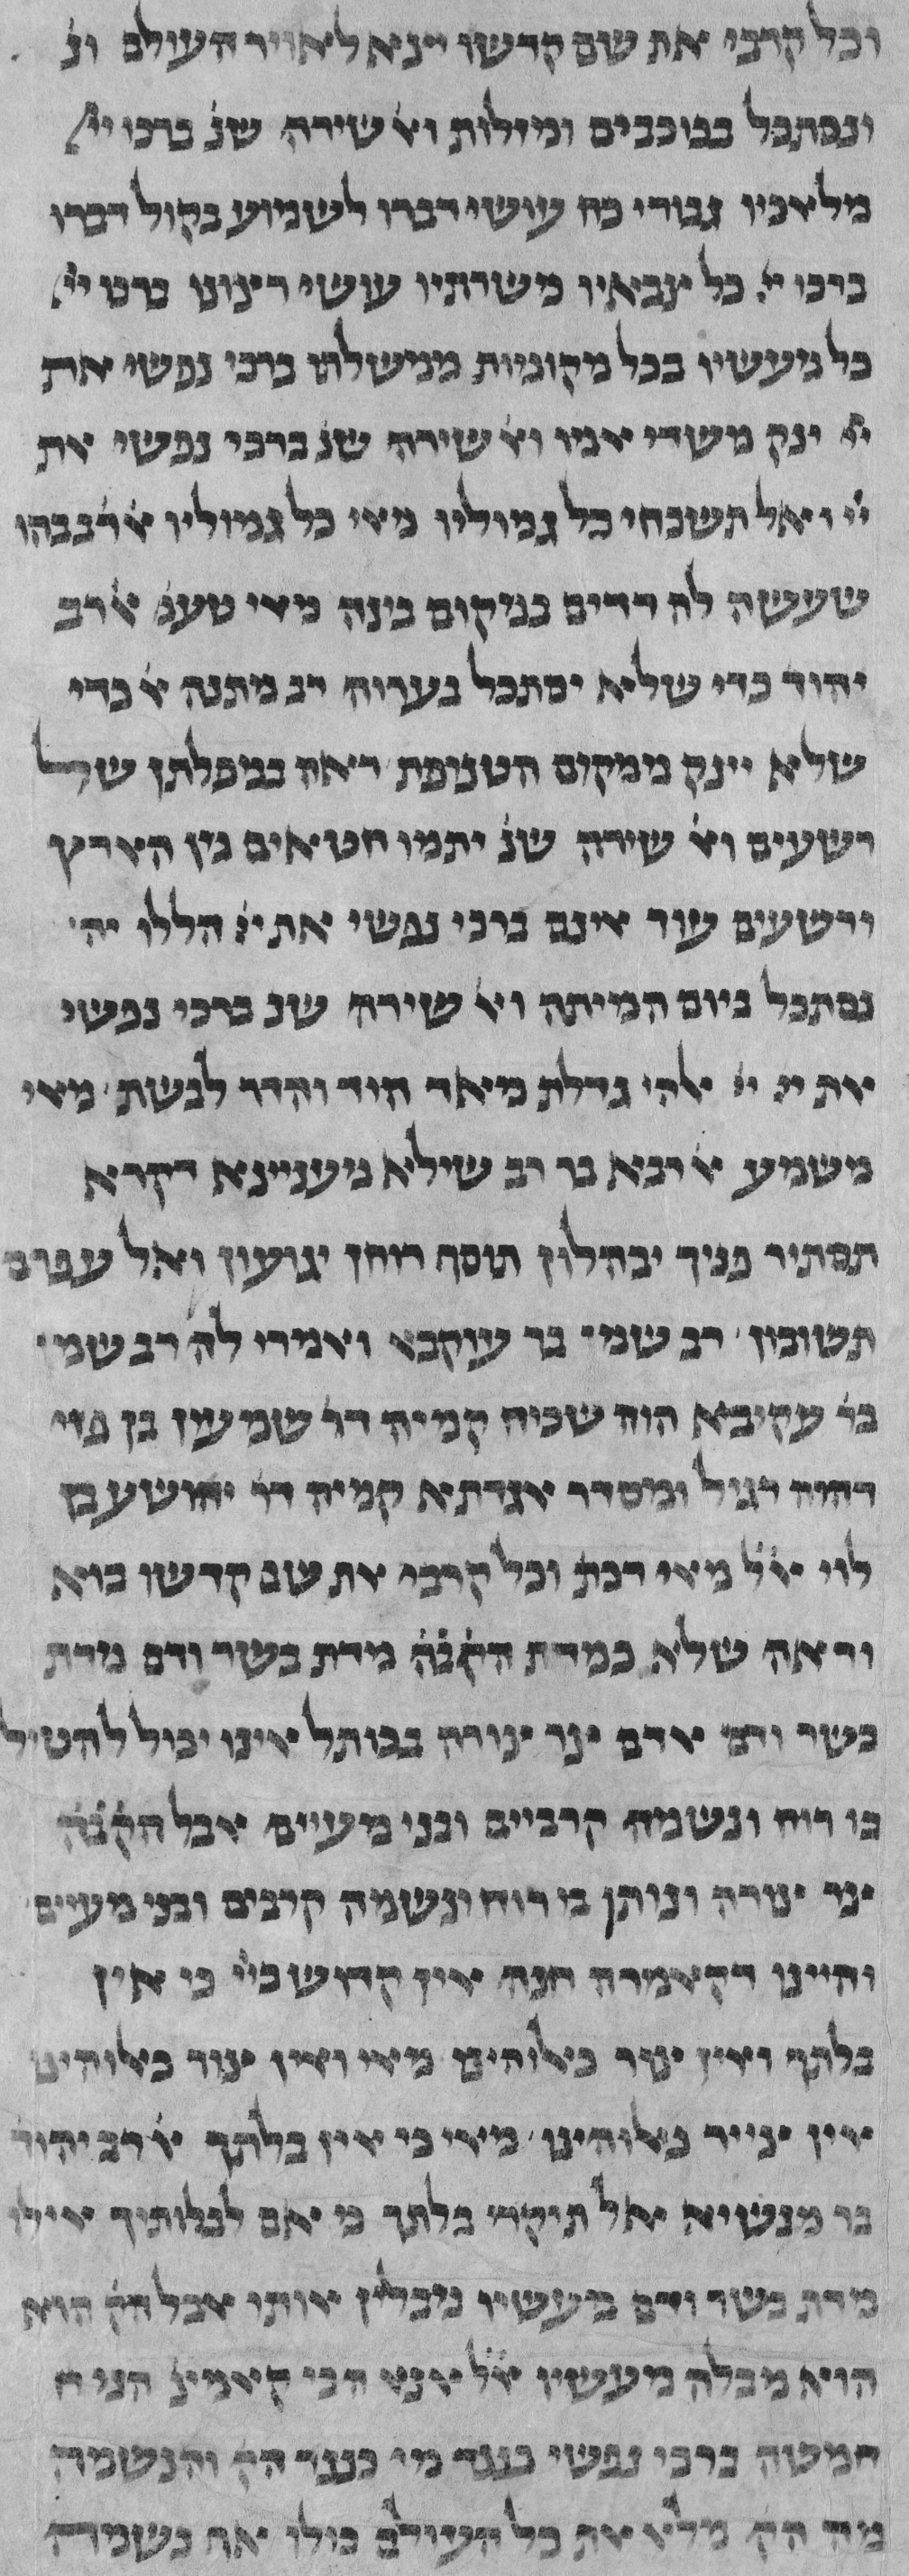 וכל קרבי את שם קדשו יצא לאויר העולם ונ
ונסתכל בכוכבים ומזלות וא שירה שנ ברכו יי
מלאכיו גבורי כח עושי דברו לשמוע בקול דברו
ברכו יי כל צבאיו משרתיו עושי רצונו ברכו יי
כל מעשיו בכל מקומות ממשלתו ברכי נפשי את
יי ינק משדי אמו וא שירה שנ ברכי נפשי את
יי ואל תשכחי כל גמוליו מאי כל גמוליו א״ר אבהו
שעשה לה דדים במקום בינה מאי טעמ א רב
יהוד כדי שלא יסתכל בערוה רב מתנה א כדי
שלא יינק ממקום הטנופת ראה במפלתן של
רשעים וא שירה שנ יתמו חטאים מן הארץ
ורשעים עוד אינם ברכי נפשי את יי הללו יה
נסתכל ביום המיתה וא שירה שנ ברכי נפשי
את יי יי אלהי גדלת מאד הוד והדר לבשת מאי
משמע א רבא בר רב שילא מעניינא דקרא
תסתיר פניך יבהלון תוסף רוחן יגועון ואל עפרם
תשובון רב שמי בר עוקבא ואמרי לה רב שמי
בר עקיבא הוה שכיח קמיה דר שמעון בן פזי
דהוה רגיל ומסדר אגדתא קמיה דר יהושע בן
לוי א״ל מאי דכת וכל קרבי את שם קדשו בוא
וראה שלא כמדת הקב״ה מדת בשר ודם מדת
בשר ודם אדם צר צורה בכותל אינו יכול להטיל
בו רוח ונשמה קרביים ובני מעיים אבל הקב״ה
צר צורה ונותן בו רוח ונשמה קרבים ובני מעים
והיינו דקאמרה חנה אין קדוש כיי כי אין
בלתך ואין צור כאלהינו מאי ואין צור כאלהינו
אין צייר כאלהינו מאי כי אין בלתך א״ר יהוד
בר מנשיא אל תיקרי בלתך מ אם לבלותיך אילו
מדת בשר ודם מעשיו מבלין אותו אבל הק הוא
הוא מבלה מעשיו א״ל אנא הכי קאמינ הני ח
חמשה ברכי נפשי כנגד מי כנגד הק והנשמה
מה הק מלא את כל העולם כולו אף נשמה